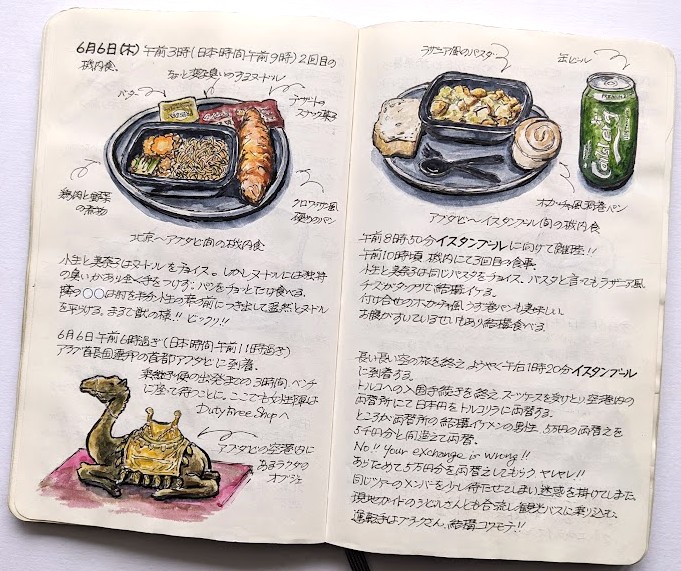 6月6日(木) 午前3時(日本時間午前9時) 2回目の
機内食。
ちょっと変な臭いのするヌードル
バター
デザートの
スナック菓子
鶏肉と野菜
の煮物
クロワッサン風
硬めのパン
北京〜アブダビ間の機内食
小生と美奈子はヌードルをチョイス。しかしヌードルには独特
の臭いがあり食べきをつけず、パンをちょっとだけ食べる。
隣の○○は肘を半分小生の席の前につき出して益然とヌードル
を平らげる。まるで獣の様!! ビックリ!!
6月6日午前6時過ぎ(日本時間午前11時過ぎ)
アラブ首長国連邦の首都アブダビに到着。
乗継ぎ便の出発までの3時間、ベンチ
に座って待つことに。ここでも女性陣は
Duty Free Shopへ
アブダビの空港内に
あるラクダの
オブジェ
ラザニア風のパスタ
缶ビール
PREMIUM
Carlsberg
オカッチャ風渦巻パン
アブダビ〜イスタンブール間の機内食
午前8時50分イスタンブールに向けて離陸!!
午前10時頃、機内にて3回目の食事。
小生と美奈子は同じパスタをチョイス。パスタと言ってもラザニア風
チーズがタップリで結構イケる。
付け合せのオカッチャ風うず巻パンも美味しい。
お腹がすいているせいもあり結構食べる。
長い長い空の旅を終え ようやく午后1時20分イスタンブール
に到着する。
トルコへの入国手続きを終え スーツケースを受けとり空港内の
両替所にて日本円をトルコリラに両替する。
ところが両替所の結構イケメンの男性、5万円の両替えを
5千円分と間違えて両替。
No!! Your exchange is wrong!!
あらためて5万円分を両替えしてもらう ヤレヤレ!!
同じツアーのメンバーを少し待たせてしまい迷惑を掛けてしまった。
現地ガイドのうどんさんとも合流し観光バスに乗り込む。
運転手はブラクさん、結構コワモテ!!